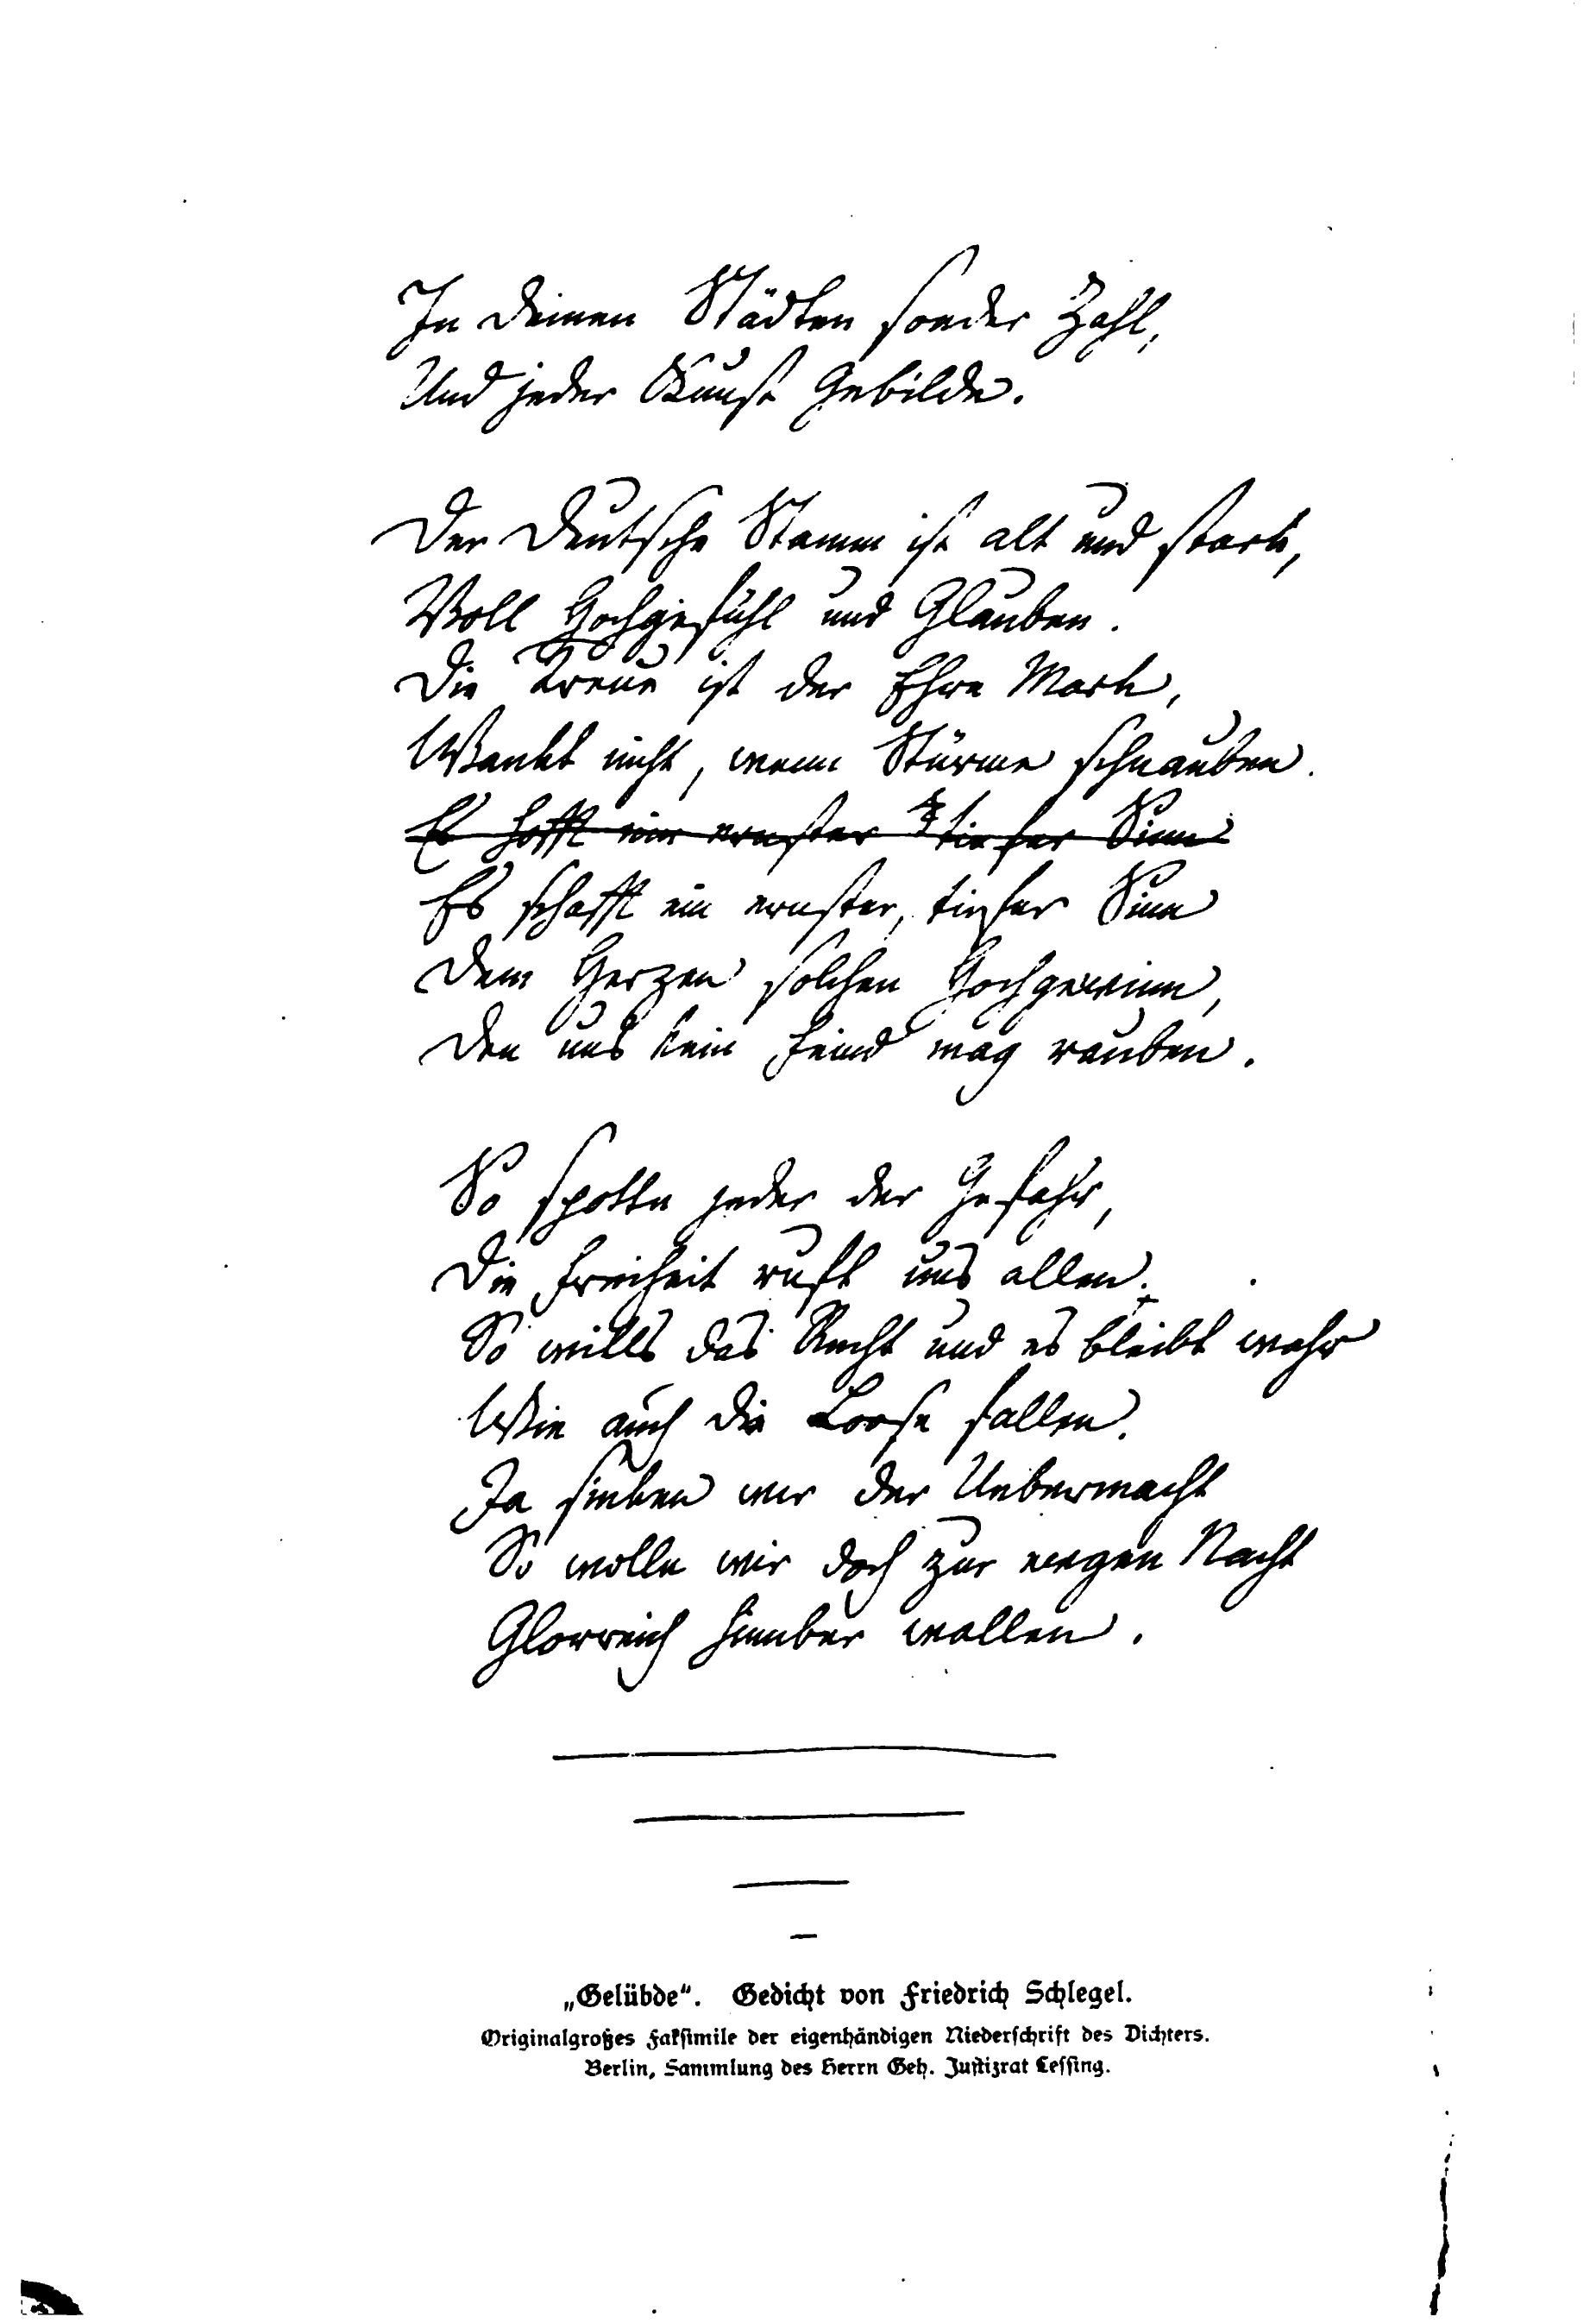 In deinen Städten sonder Zahl,
Und jeder Kunst Gebilde.
Der deutsche Stamm ist alt und stark,
Voll Hochgefühl und Glauben.
Die Treue ist der Ehre Mark,
Wankt nicht, wenn Stürme schnauben.
Es schafft ein ernster, tiefer Sinn
Dem Herzen solchen Hochgewinn,
Den uns kein Feind mag rauben.
So spotte jeder der Gefahr,
Die Freiheit ruft uns allen.
So wills das Recht und es bleibt wahr
Wie auch die Loose fallen.
Ja sinken wir der Uebermacht
So wolln wir doch zur ewgen Nacht
Glorreich hinüber wallen.
„Gelübde“. Gedicht von Friedrich Schlegel.
Originalgroßes Faksimile der eigenhändigen Niederschrift des Dichters.
Berlin, Sammlung des Herrn Geh. Justizrat Lessing.